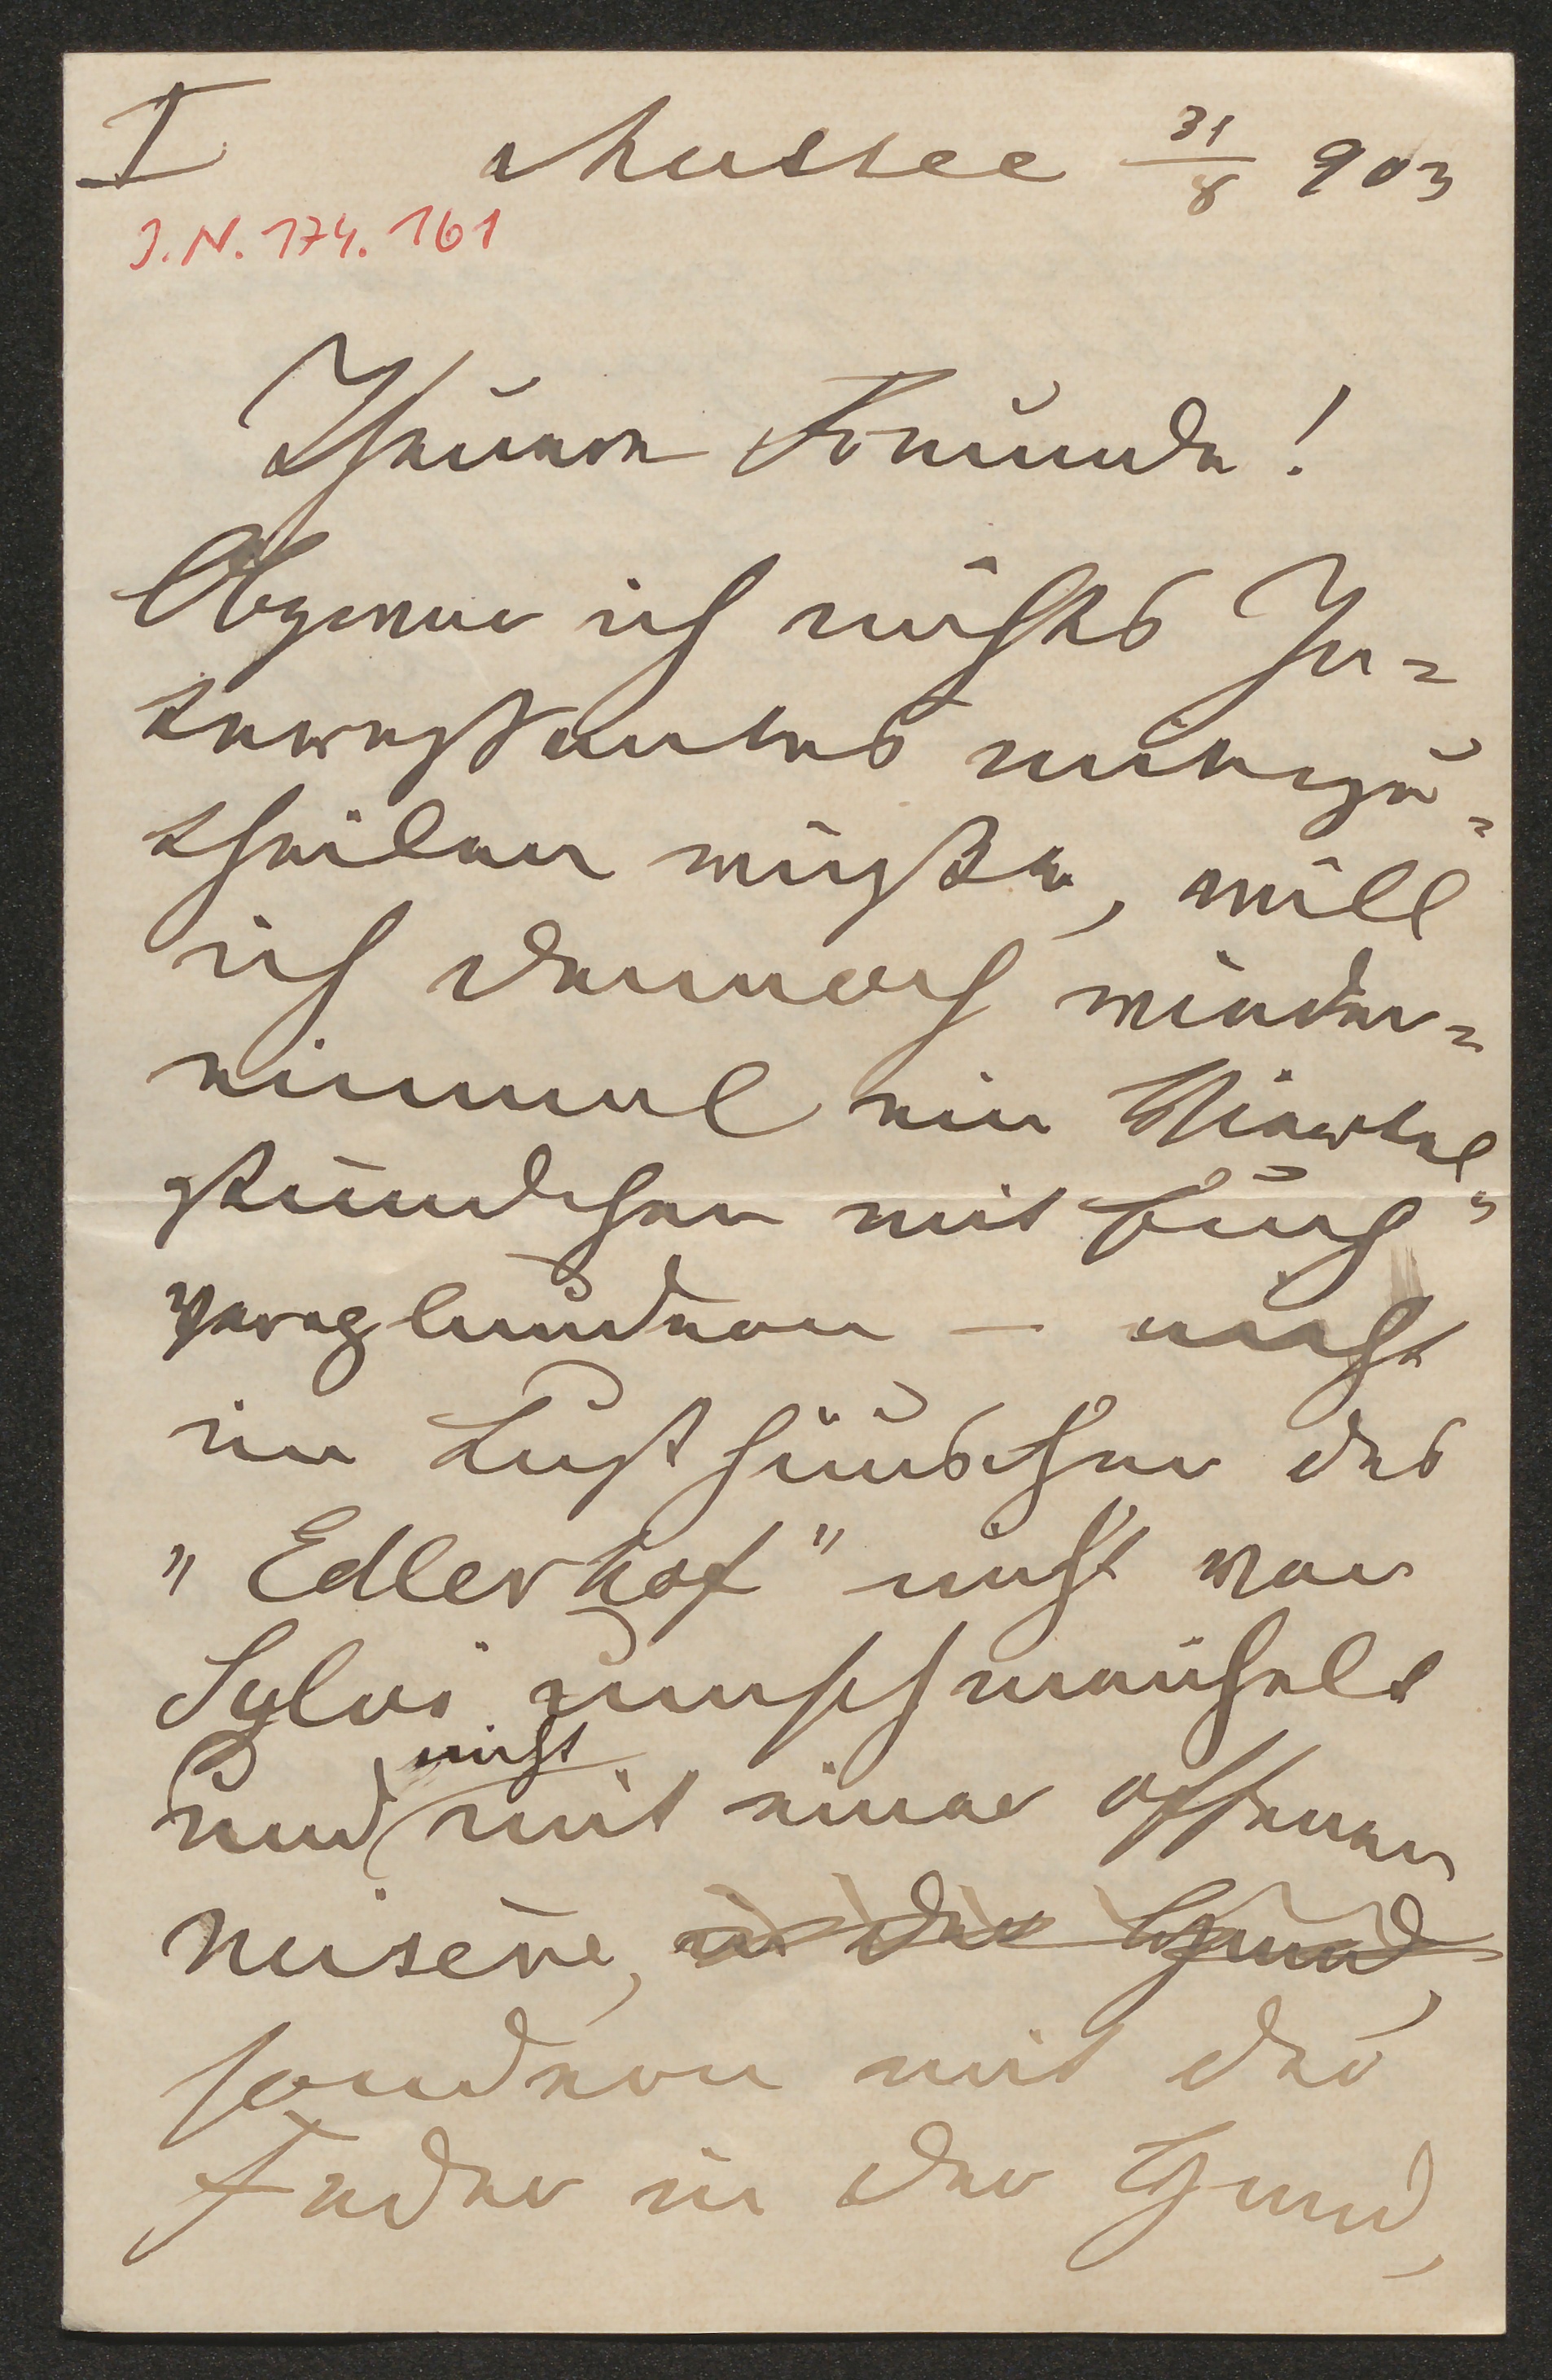 I Aussee 31/8 903
J.N. 174.161
Theuere Freunde!
Obzwar ich nichts In=
teressantes mitzu=
theilen wüsste, will
ich dennoch wieder=
einmal ein Viertel=
stündchen mit Euch
verplaudern — nicht
im Lusthäuschen des
"Edlerhof" nicht von
Sylvi umschmeichelt
und nicht mit einer offenen
misère, in der Hand,
sondern mit der
Feder in der Hand,